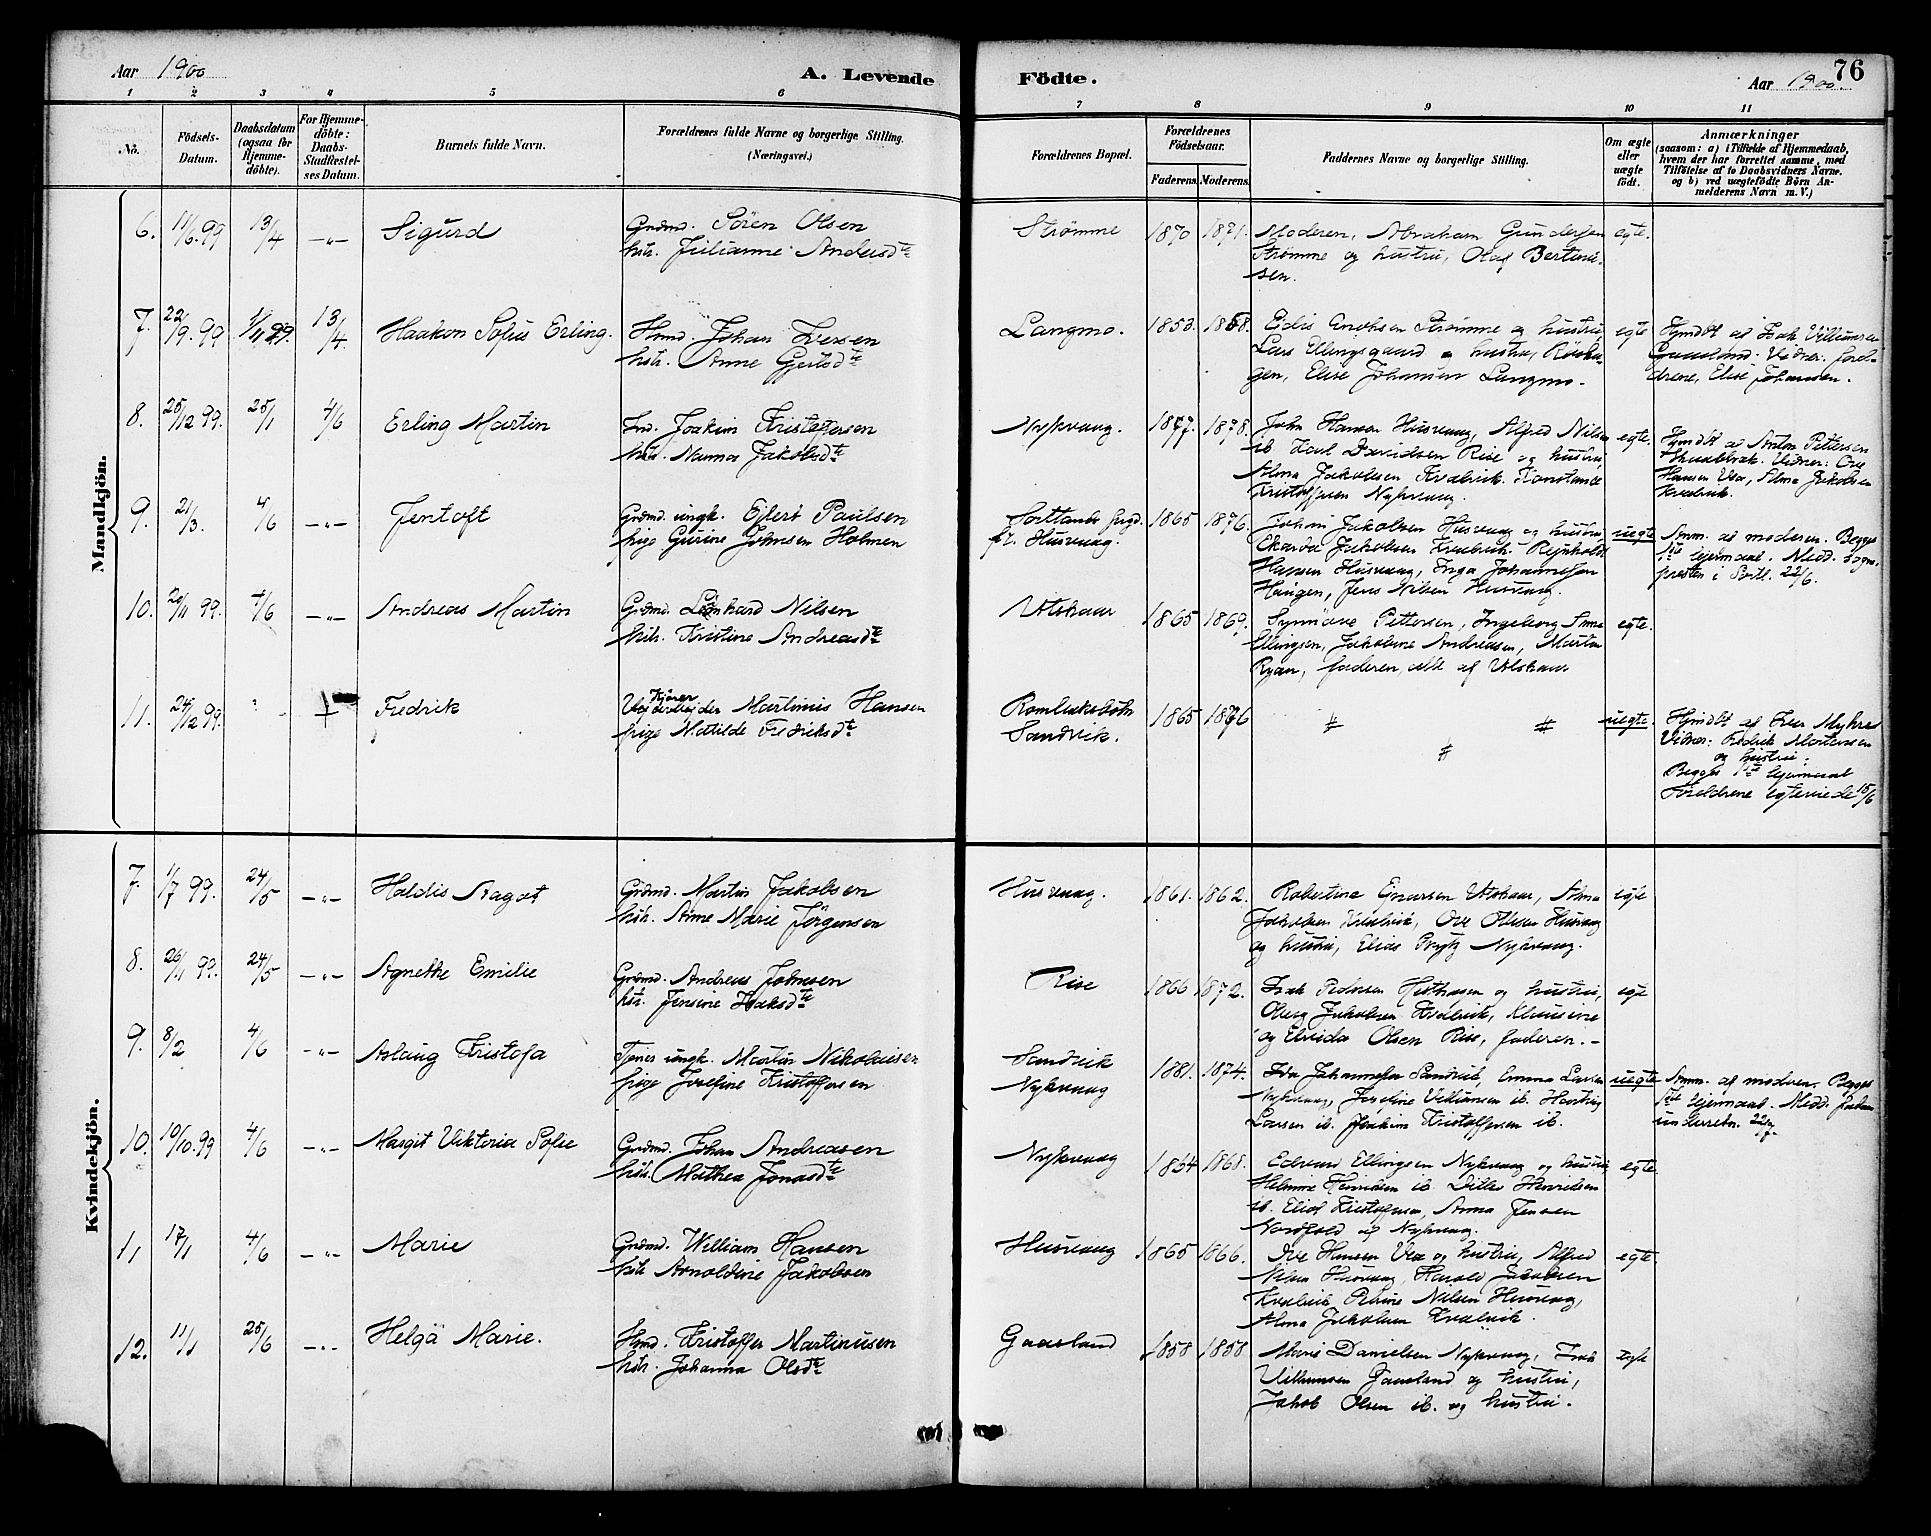 Aar 1900 A. Levende
Födte. Aar 1900. 76
1 2 3 4 5 6 7 8 9 10 11
No. Födsels-Datum. Daabsdatum (ogsaa for Hjemme-döbte). For Hjemme-döbte: Daabs-Stadfæstel-ses Datum. Barnets fulde Navn. Forældrenes fulde Navne og borgerlige Stilling. (Næringsvei.)
Forældrenes Bopæl. Forældrenes Födselsaar. Faderens. Moderens. Faddernes Navne og borgerlige Stilling. Om ægte eller uægte født. Anmærkninger (saasom: a) i Tilfælde af Hjemmedaab, hvem der har forrettet samme, med Tilföielse af to Daabsvidners Navne. og b) ved uægtefödte Börn An-melderens Navn m. V.)
Mandkjön.
6. 11/6.99 13/4 -"- Sigurd Grdmd. Sören Olsen
hstr. Julianne Andersdtr
Strømme 1870 1871. Moderen, Abraham Gundersen egte.
Strømme og hustru, Olaf Bertini-
sen.
7. 22/9.99 1/11 99. 13/4. Haakon Sofus Erling. Hmd. Johan Iversen
hstr. Anne Gjertsdtr
Langmo. 1853. 1858. Eidis Enoksen Strømme og hustru, egte
Lars Ellingsgaard og hustru, Röisha-
gen, Elise Johansen Langmo.
Hjmdbt af Isak Villiamsen
Gaasland. Vidner: forel-
drene, Elise Johansen.
8. 25/12 99. 25/1 4/6 Erling Martin Ind. Joakim Kristoffersen
hstr. Nanna Jakobsdtr
Nykvaag. 1877. 1878. John Hansen Husvaag, Alfred Nilsen egte.
ib. Karl Davidsen Rise og hustru,
Alma Jakobsen Kvalvik. Konstanse
Kristoffersen Nykvaag.
Hjmdbt af Anton Pettersen
Vidner: Ove
Hansen Vea, Alma Jakobsen
Kvalvik.
9. 21/3. 4/6 -"- Jentoft Grdmd. ungk. Ejlert Paulsen
pige Gurine Johnsen Holmen
Sortlands
pr. Husvaag. 1865 1876. Johan Jakobsen Husvaag og hustru uegte
Ekarda Jakobsen Kvalvik. Rejnholdt
Hansen Husvaag, Inga Johannesen
Haugen, Jens Nilsen Husvaag.
Anm. af moderen. Begges
1ste lejermaal. Medd. sogne-
presten i Sortl. 22/6.
10. 20/11 99. 4/6 -"- Andreas Martin Grdmd. Lenhard Nilsen
hstr. Kristine Andreasdtr
Utskaar 1865 1869. Synnöve Pettersen, Ingeborg Anna egte.
Ellingsen, Jakobine Andreasen, Martin
Ryan, faderen, alle af Utskaar
11. 24/12 99. Fredrik Martinus Hansen
pige Matilde Fredriksdtr
Sandvik. 1865 1876 # # uegte.
#
Hjmdbt af Iver Myhre
Vidner: Fredrik Mortensen
og hustru.
Begges 1ste lejermaal
Foreldrene egteviede 15/6
Kvindekjön.
7. 1/7 99. 24/5 -"- Haldis Aagot Grdmd. Martin Jakobsen
hstr. Anne Marie Jörgensen
Husvaag. 1861. 1862. Robertine Enersen Utskaar, Alma egte
Jakobsen Kvalvik, Ove Olsen Husvaag
og hustru, Elias Prytz Nykvaag.
8. 26/11 99. 24/5 -"- Agnethe Emilie Grdmd. Andreas Johnsen
hstr. Jensine Isaksdtr
Rise 1866 1872. Isak Pedersen og hustru, egte
Oberg Jakobsen Kvalvik, Klausine
og Elvida Olsen Rise, faderen. -
9. 8/2 4/6 -"- Aslaug Kristofa Tjener ungk. Martin Nikolaisen
pige Josefine Kristoffersen
Sandvik
Nykvaag 1881. 1874. Ida Johannesen Sandvik, Emma Larsen uegte
Nykvaag, Josefine Villumsen ib. Hartvig
Larsen ib. Joakim Kristoffersen ib.
Anm. af moderen. Begges
1ste lejermaal. Medd. faderen
underretn. 22/7.
10. 10/10.99 4/6 -"- Margit Viktoria Sofie Grdmd. Johan Andreasen
hstr. Mathea Jonasdtr
Nykvaag 1864 1868. Edvard Ellingsen Nykvaag og hustru egte.
Helmine Henriksen ib. Ditlef Henriksen
ib. Elias Kristoffersen, Anna Jensen
Nordfold af Nykvaag.
11 17/1 4/6 -"- Marie Grdmd. William Hansen
hstr Arnoldine Jakobsen
Husvaag 1865 1866. Ove Hansen Vea og hustru, Alfred egte.
Nilsen Husvaag, Harald Jakobsen
Kvalvik Petrine Nilsen Husvaag,
Alma Jakobsen Kvalvik.
12. 11/1 25/6 -"- Helga Marie. Hmd. Kristoffer Martinusen
hstr. Johanna Olsdtr
Gaasland 1858 1858 Maris Danielsen Nykvaag, Isak egte
Villumsen Gaasland og hustru,
Jakob Olsen ib. og hustru.